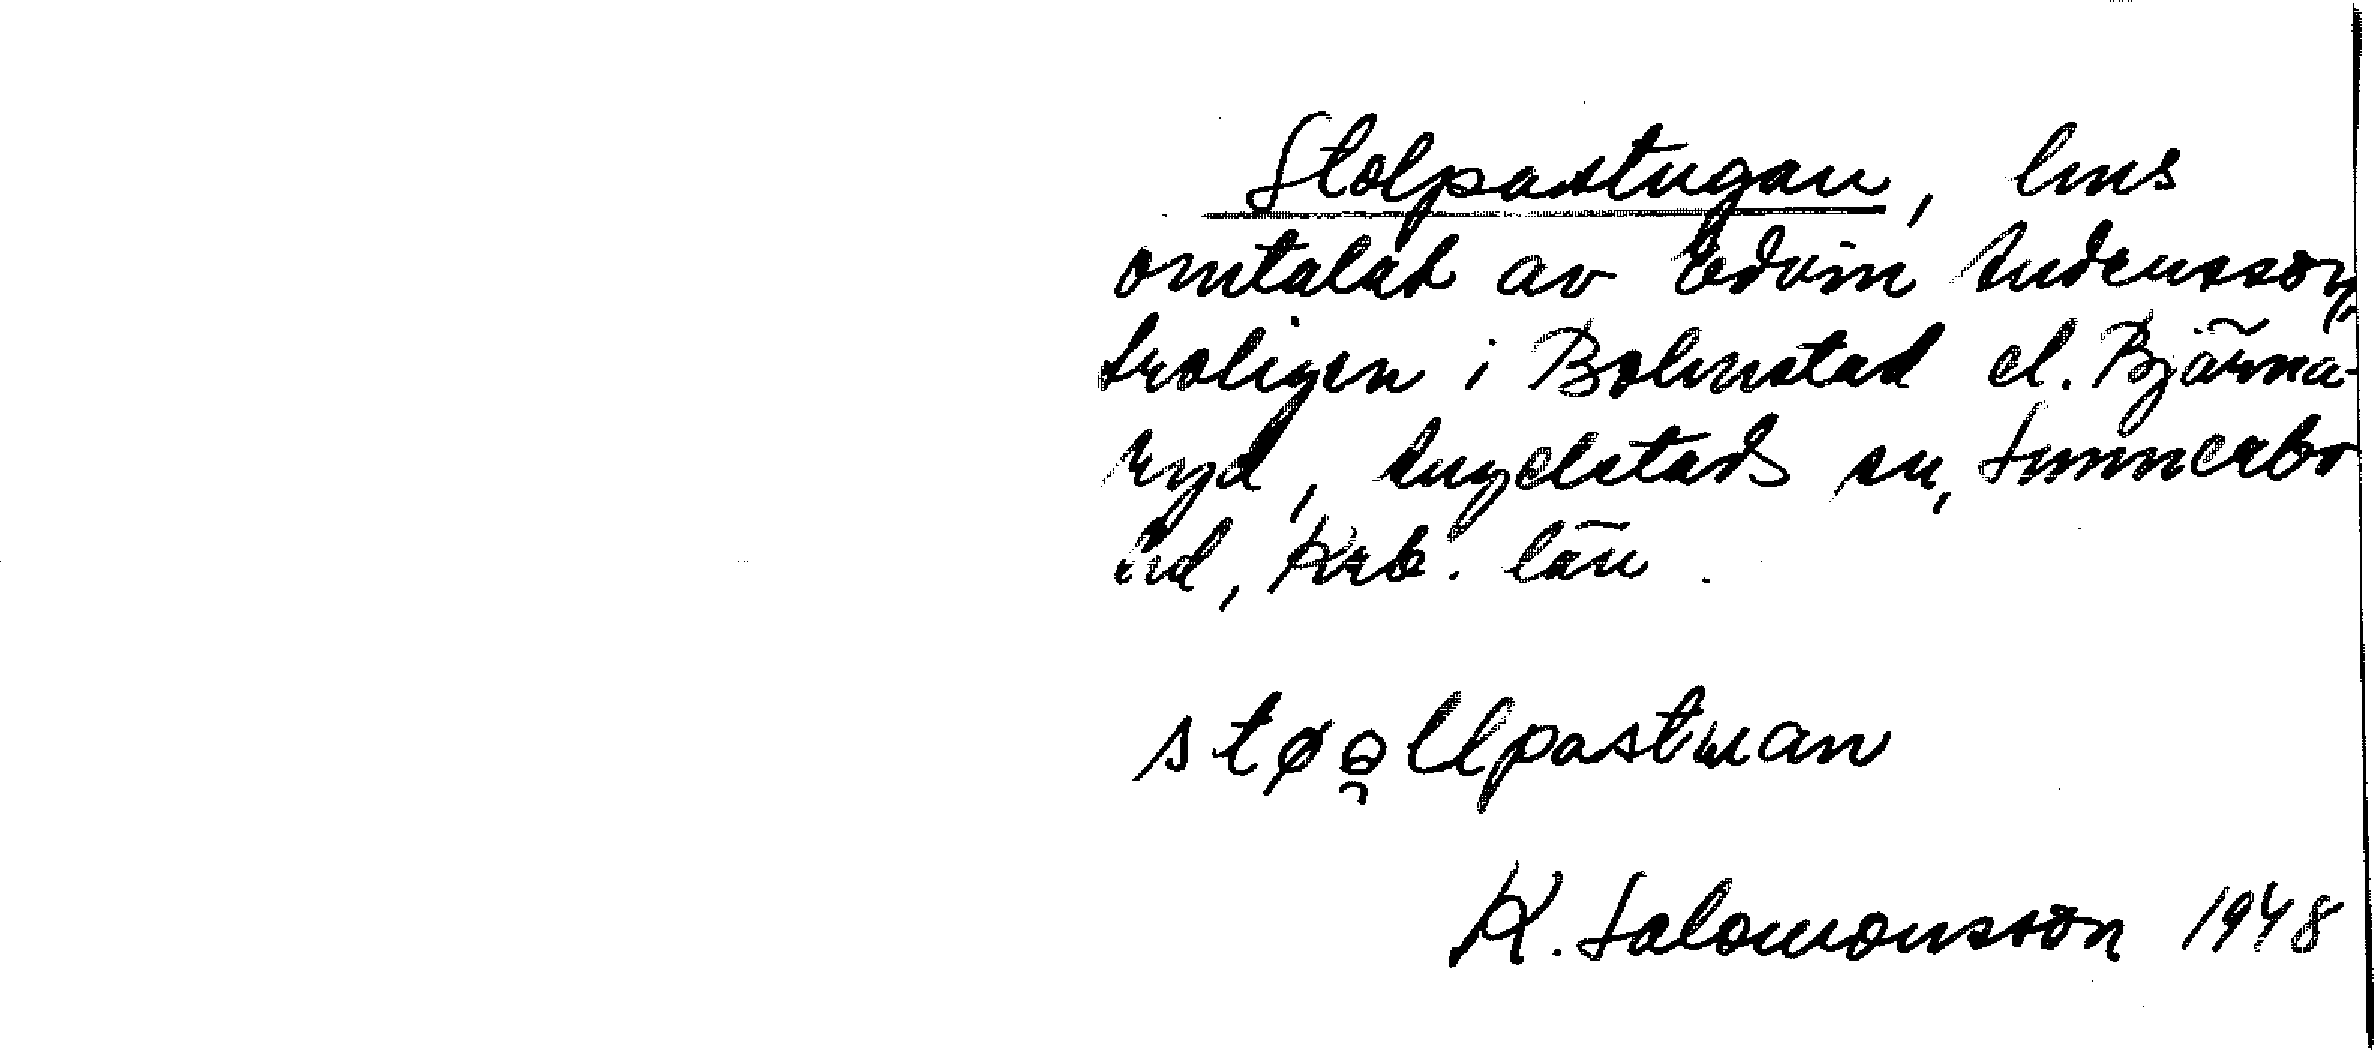 Stolpastugan, hus
omtalat av Edvin Andersson,
troligen i Bolmstad el. Bjärna-
ryd, Angelstads sn, Sunnerbo
hd, Krb. län.
støo̯llpastuan
K. Salomonsson 1948